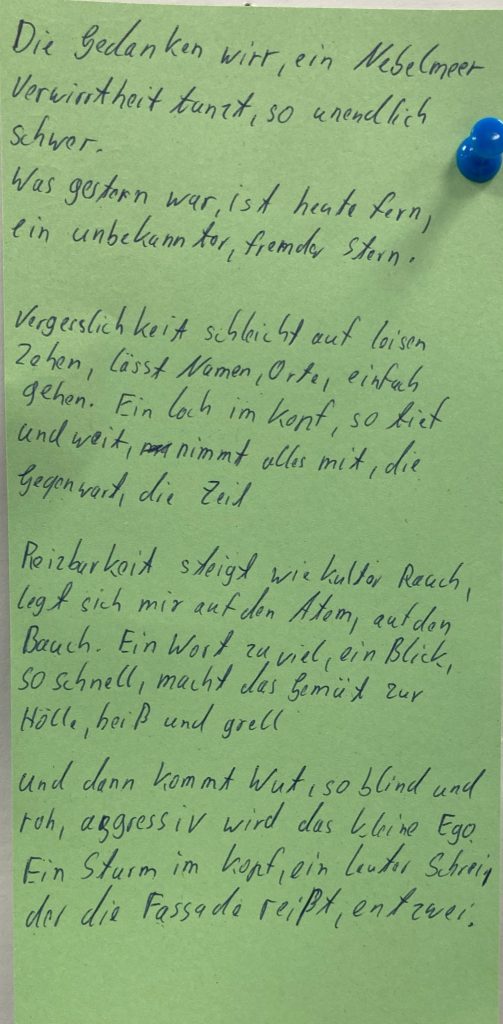 Die Gedanken wirr, ein Nebelmeer
Verwirrtheit tanzt, so unendlich
schwer.
Was gestern war, ist heute fern,
ein unbekannter, fremder Stern.
Vergesslichkeit schleicht auf leisen
Zehen, lässt Namen, Orte, einfach
gehen. Ein Loch im Kopf, so tief
und weit, nimmt alles mit, die
Gegenwart, die Zeit
Reizbarkeit steigt wie kalter Rauch,
legt sich mir auf den Atem, auf den
Bauch. Ein Wort zu viel, ein Blick,
so schnell, macht das Gemüt zur
Hölle, heiß und grell
und dann kommt Wut, so blind und
roh, aggressiv wird das kleine Ego.
Ein Sturm im Kopf, ein lauter Schrei,
der die Fassade reißt, entzwei.